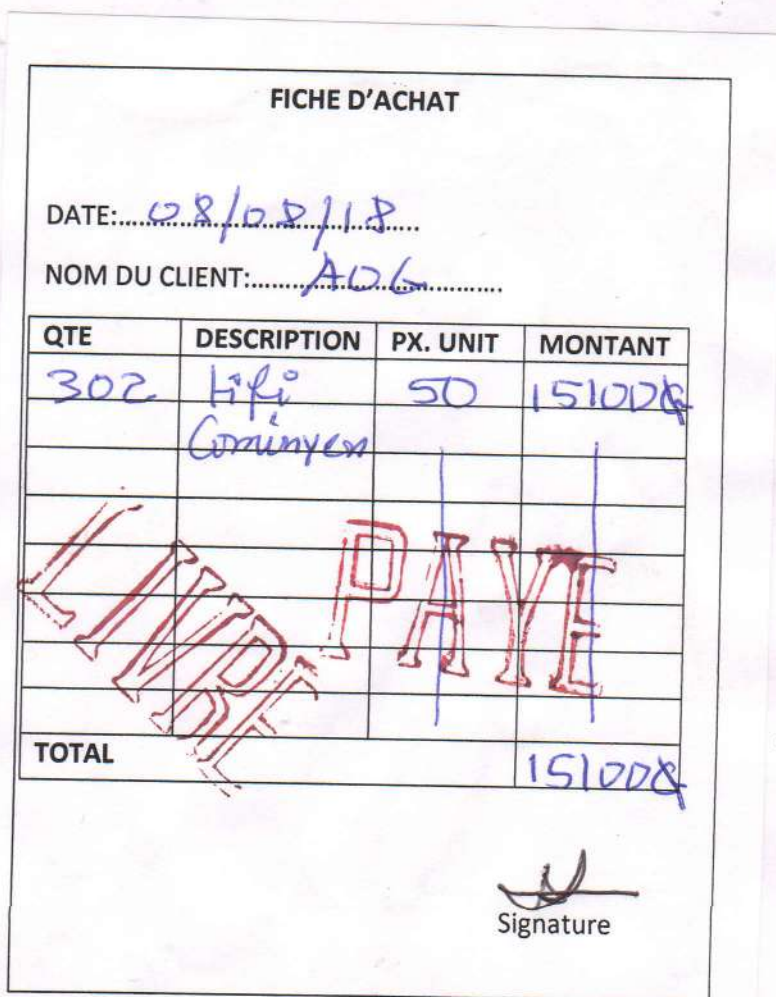 FICHE D'ACHAT
DATE: 08/08/18
NOM DU CLIENT: AOG
QTE DESCRIPTION PX. UNIT MONTANT
302 50 15100
LIVRE
PAYE
TOTAL 15100
Signature